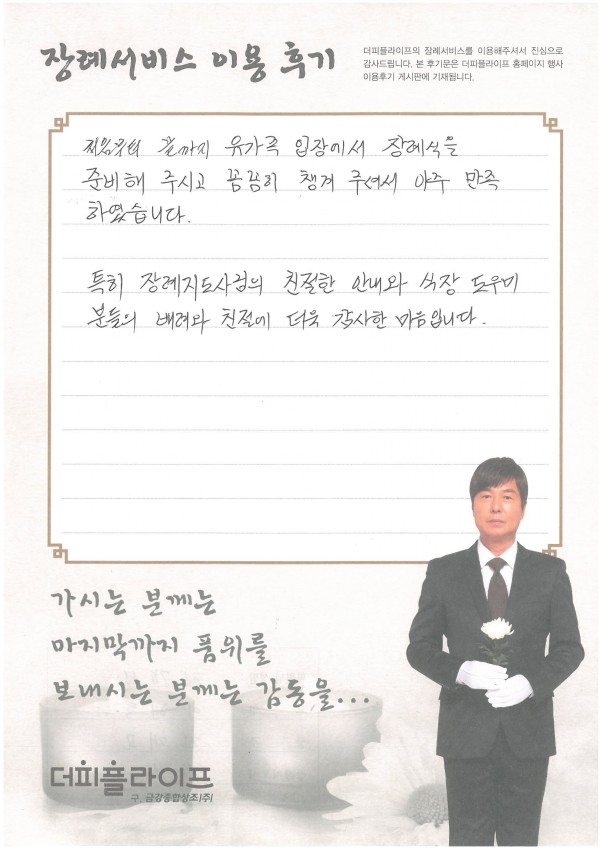 장례서비스 이용 후기
더피플라이프의 장례서비스를 이용해주셔서 진심으로
감사드립니다. 본 후기문은 더피플라이프 홈페이지 행사
이용후기 게시판에 기재됩니다.
처음부터 끝까지 유가족 입장에서 장례식을
준비해 주시고 꼼꼼히 챙겨 주셔서 아주 만족
하였습니다.
특히 장례지도사님의 친절한 안내와 식장 도우미
분들의 배려와 친절에 더욱 감사한 마음입니다.
가시는 분께는
마지막까지 품위를
보내시는 분께는 감동을...
더피플라이프
구. 금강종합상조(주)